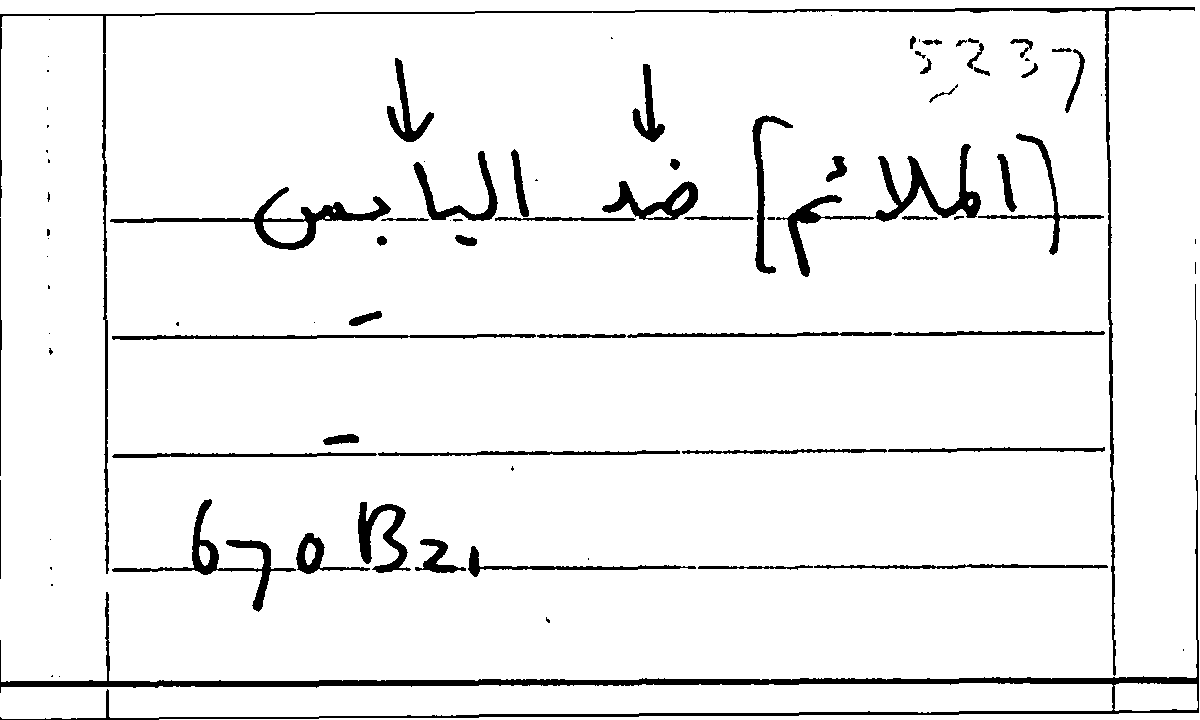 5237
(الملائم] ضد اليابس
670 B21